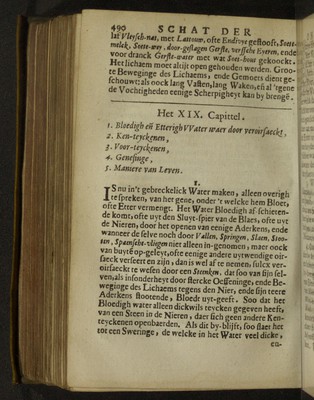 490 SCHAT DER
lat Vleysch-nat, met Lattouw, ofte Endivye gestooft, Soete-
melck, Soete-wey, door-geslagen Gerste, versche Eyeren, ende
voor dranck Gerste-water met wat Soet-hout gekoockt.
Het lichaem moet altijt open gehouden werden. Groo-
te Beweginge des Lichaems, ende Gemoets dient ge-
schouwt: als oock lang Vasten, lang Waken, en al 'tgene
de Vochtigheden eenige Scherpigheyt kan by brengë.
Het XIX. Capittel.
1. Bloedigh en Etterigh VVater waer door veroirsaeckt,
2. Ken-teyckenen,
3. Voor-teyckenen,
4. Genesinge,
5. Maniere van Leven.
1.
IS nu in't gebreckelick Water maken, alleen overigh
te spreken, van het gene, onder 't welcke hem Bloet,
ofte Etter vermengt. Het Water Bloedigh af-schieten-
de komt, ofte uyt den Sluyt-spier van de Blaes, ofte uyt
de Nieren, door het openen van eenige Aderkens, ende
wanneer de selve noch door Vallen, Springen, Slaen, Stoo-
ten, Spaensche-vliegen niet alleen in-genomen, maer oock
van buytë op-geleyt, ofte eenige andere uytwendige oir-
saeck verseert en zijn, dan is wel af te nemen, sulcx ver-
oirsaeckt te wesen door een Steenken, dat soo van sijn sel-
ven, als insonderheyt door stercke Oeffeninge, ende Be-
weginge des Lichaems tegens den Nier, ende sijn teere
Aderkens stootende, Bloedt uyt-geeft. Soo dat het
Bloedigh water alleen dickwils teycken gegeven heeft,
van een Steen in de Nieren, daer sich geen andere Ken-
teyckenen openbaerden. Als dit by-blijft, soo slaet het
tot een Sweringe, de welcke in het Water veel dicke,
en-